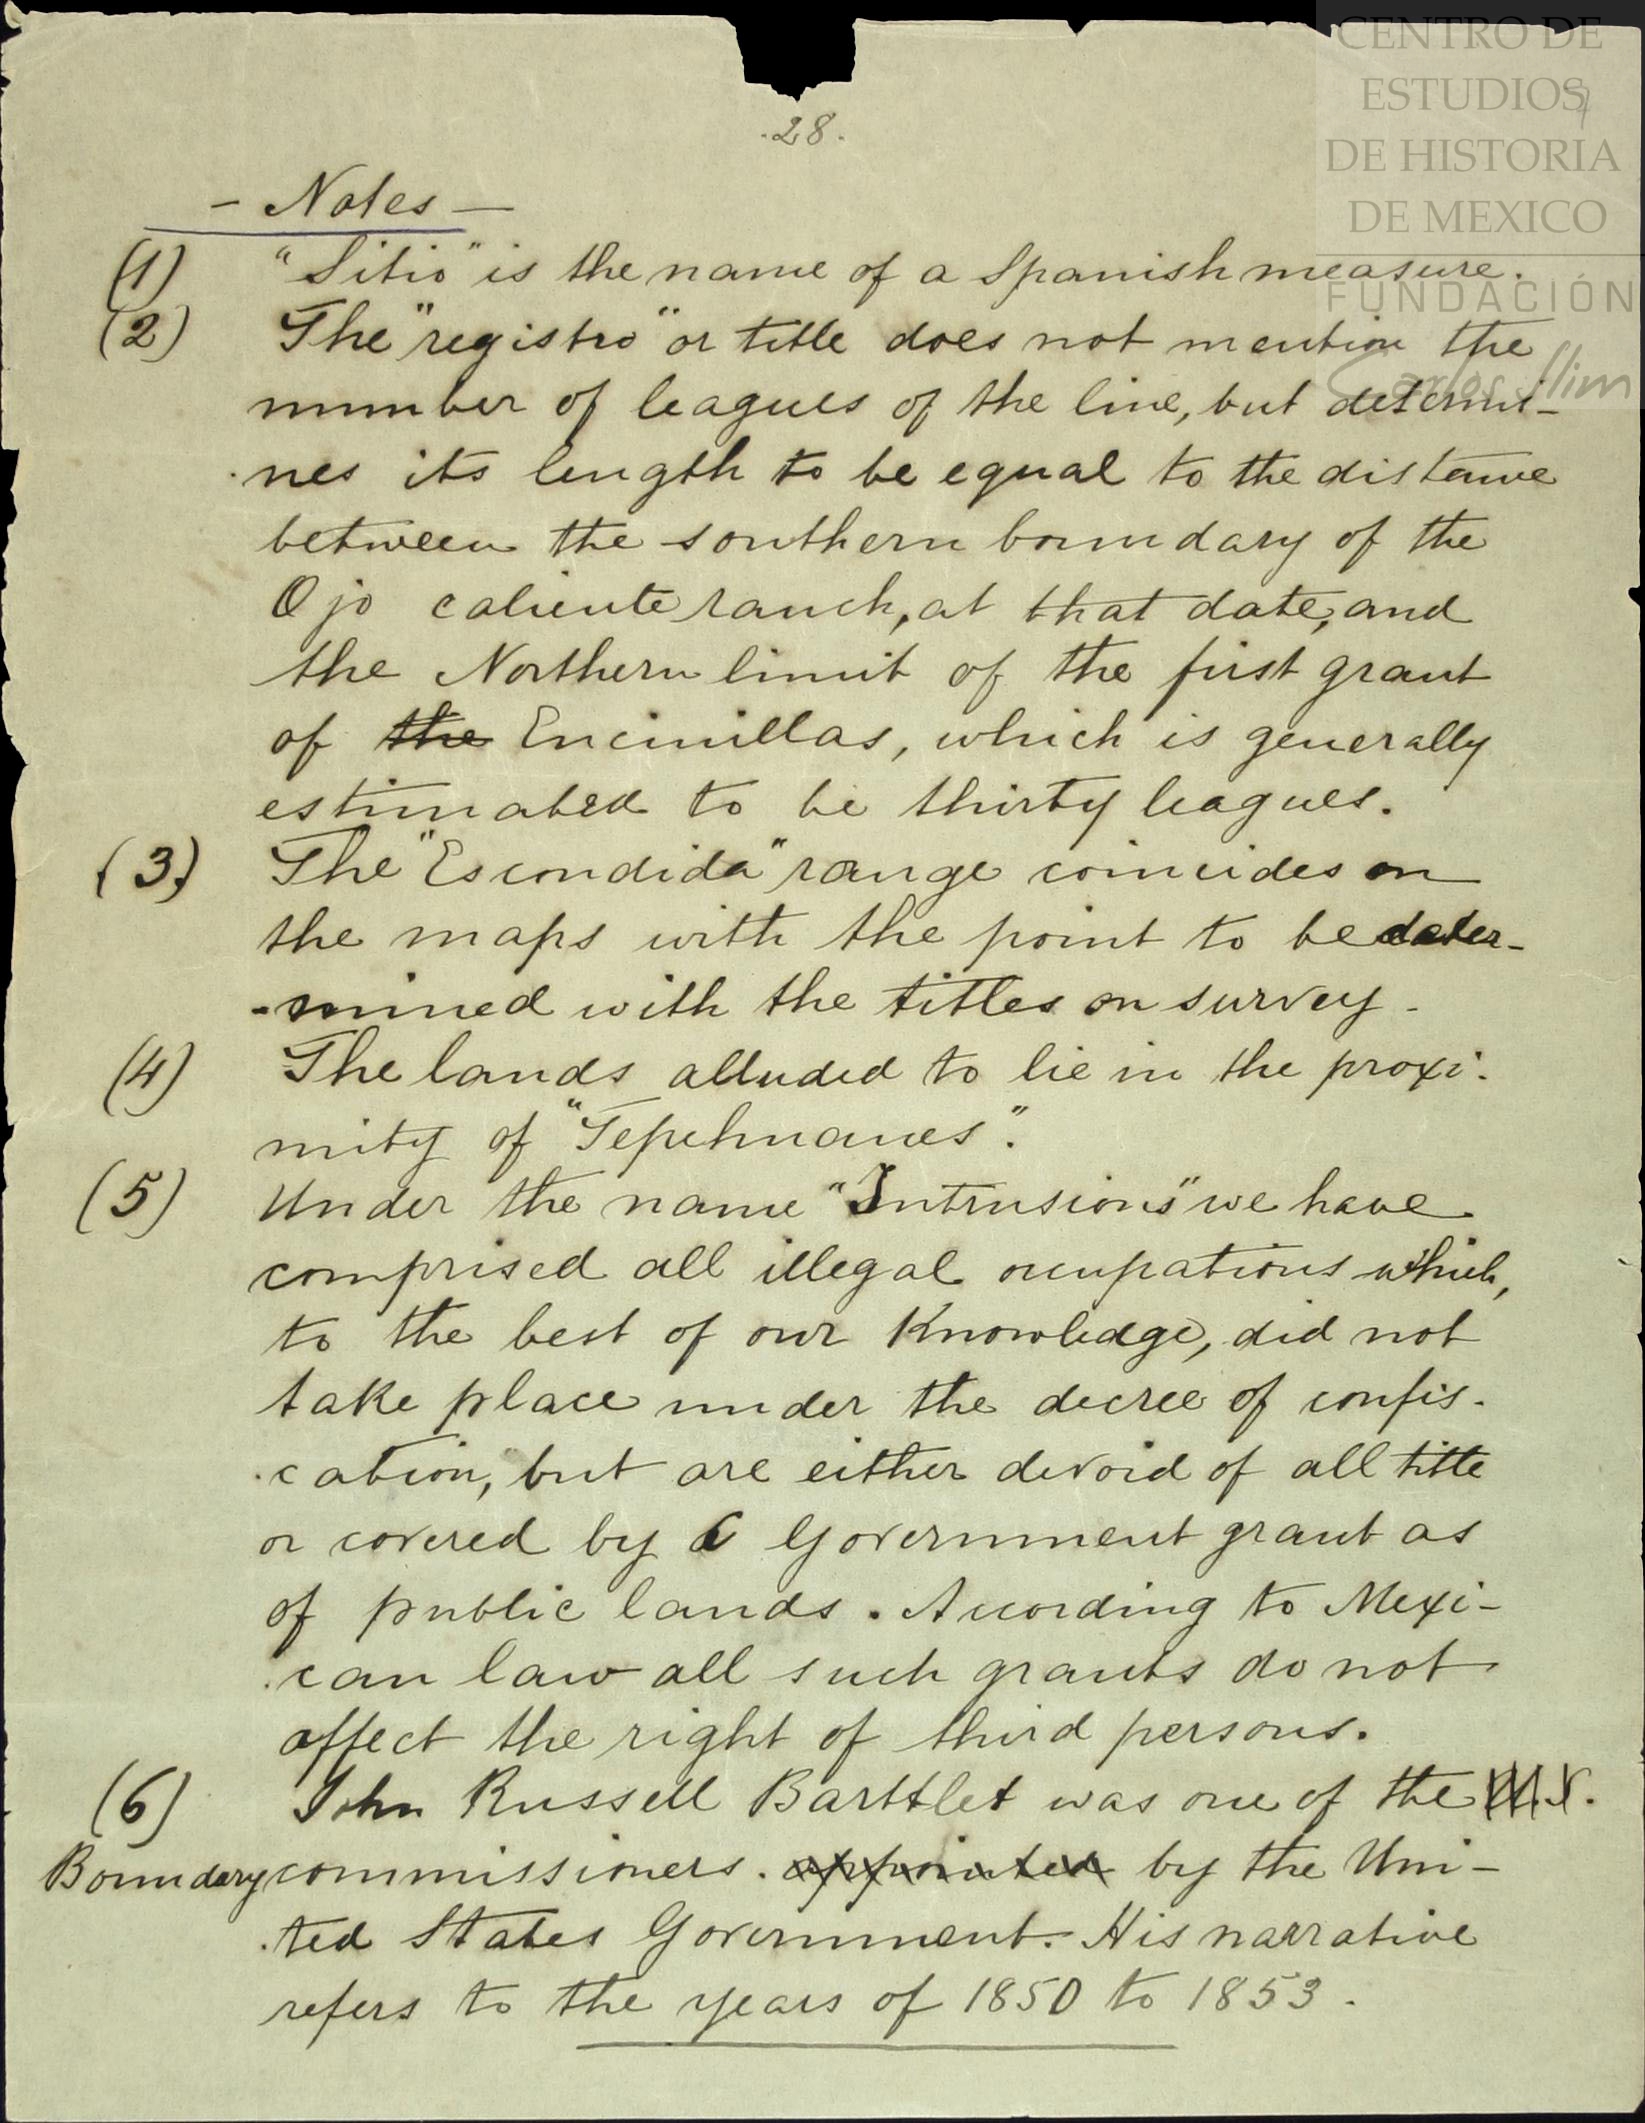 CENTRO DE
ESTUDIOS
DE HISTORIA
DE MEXICO
FUNDACIÓN
Carlos Slim
.28.
- Notes -
(1) "Sitio" is the name of a Spanish measure.
(2) The "registro" or title does not mention the
number of leagues of the line, but determi-
nes its length to be equal to the distance
between the southern boundary of the
Ojo caliente ranch, at that date, and
the Northern limit of the first grant
of the Encinillas, which is generally
estimated to be thirty leagues.
(3) The "Escondida" range coincides on
the maps with the point to be deter-
-mined with the titles on survey.
(4) The lands alluded to lie in the proxi-
mity of "Tepehuanes".
(5) Under the name "Intrusions" we have
comprised all illegal occupations which,
to the best of our Knowledge, did not
take place under the decree of confis-
-cation, but are either devoid of all title
or covered by a Government grant as
of public lands. According to Mexi-
-can law all such grants do not
affect the right of third persons.
(6) John Russell Barttlet was one of the
Boundary commissioners. appointed by the Uni-
-ted States Government. His narrative
refers to the years of 1850 to 1853.